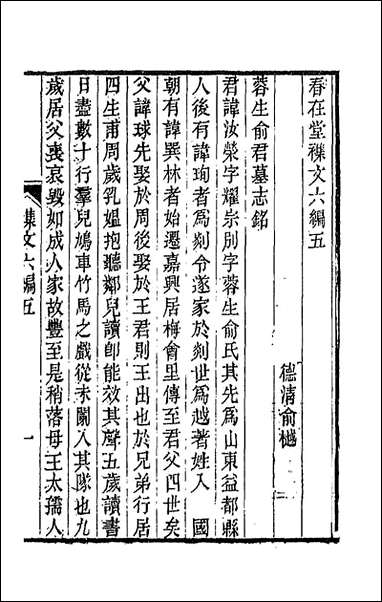 春在堂襍文六編五
德淸俞樾
蓉生俞君墓志銘
君諱汝榮字耀宗別字蓉生俞氏其先爲山東益都縣
人後有諱珣者爲剡令遂家於剡世爲越著姓入　國
朝有諱巽林者始遷嘉興居梅會里傳至君父四世矣
父諱球先娶於周後娶於王君則王出也於兄弟行居
四生甫周歲乳媼抱聽鄰兒讀卽能效其聲五歲讀書
日盡數十行羣兒鳩車竹馬之戲從未闌入其隊也九
歲居父喪哀毀如成人家故豐至是稍落母王太孺人
襍文六編五
一